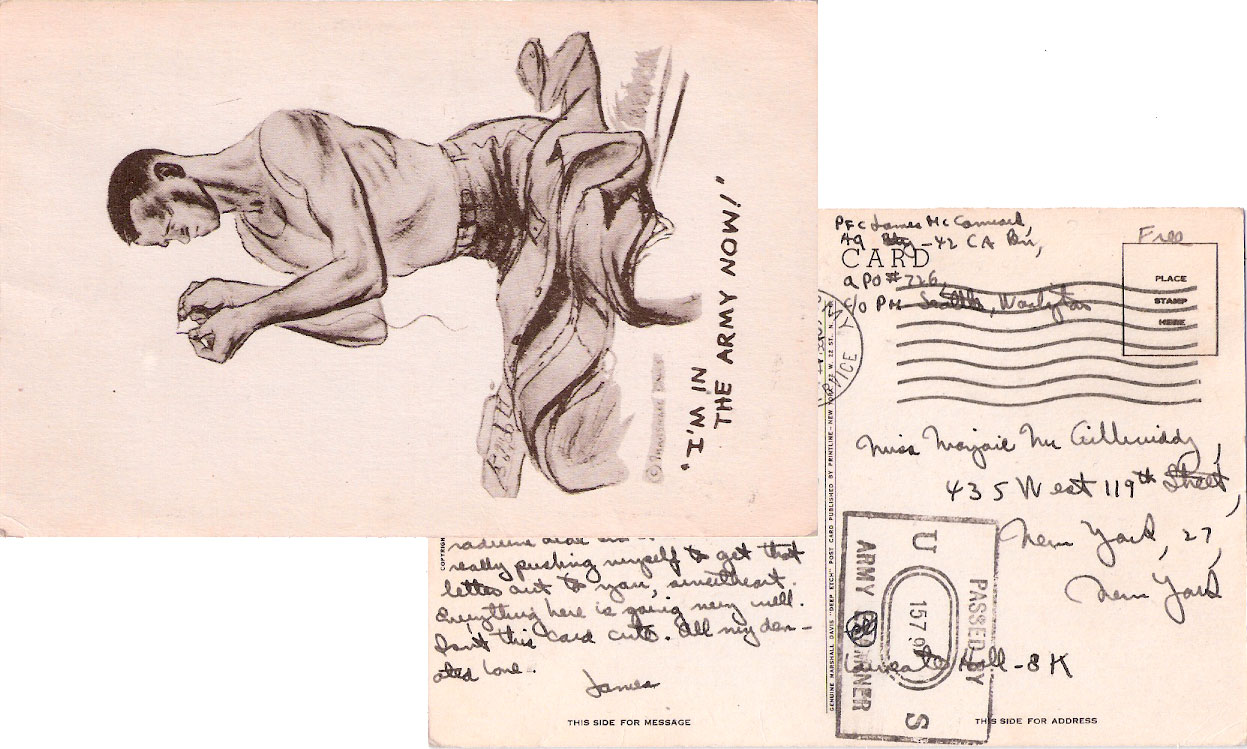 "I'M IN
THE ARMY NOW!"
© MARSHALL DAVIS
PFC James McCamead,
Hq Btry - 42 CA Bn,
APO #726,
c/o PM Seattle, Washington
CARD
Free
PLACE
STAMP
HERE
Miss Marjorie
435 West 119th Street,
New York, 27,
New York
- 8 K
U S
PASSED BY
ARMY EXAMINER
GENUINE MARSHALL DAVIS "DEEP ETCH" POST CARD PUBLISHED BY PRINTLINE-NEW YORK, 22 W. 22 ST. N.
COPYRIGH
really pushing myself to get that
letter out to you, sweetheart.
Everything here is going very well.
Isn't this card cute. All my dev-
oted love.
James
THIS SIDE FOR MESSAGE
THIS SIDE FOR ADDRESS